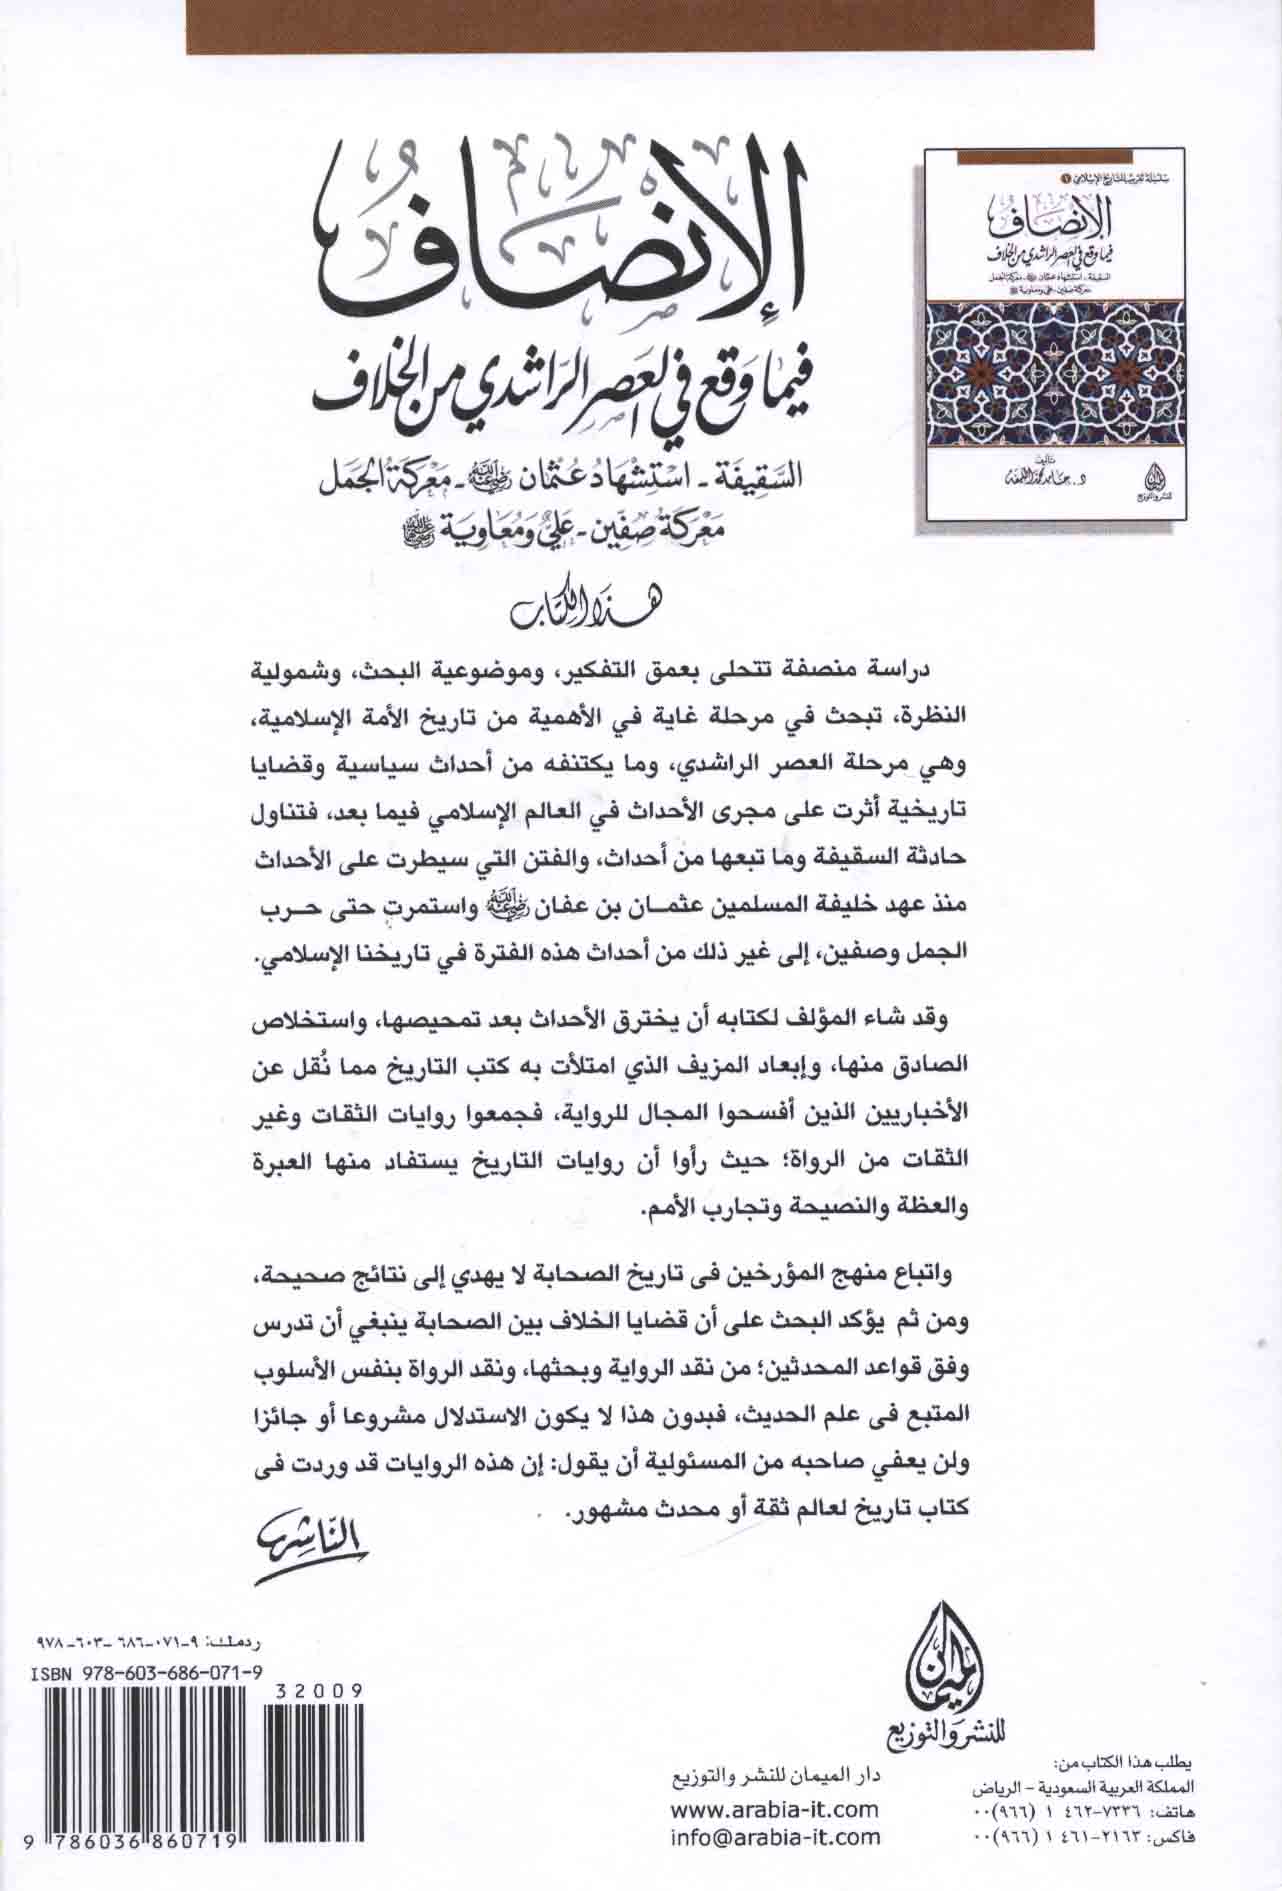 الإنصاف
فيما وقع في العصر الراشدي من الخلاف
السقيفة - استشهاد عثمان رضي الله عنه - معركة الجمل
معركة صفين - علي ومعاوية رضي الله عنهما
سلسلة تقريب التاريخ الإسلامي
الإنصاف
فيما وقع في العصر الراشدي من الخلاف
السقيفة - استشهاد عثمان رضي الله عنه - معركة الجمل
معركة صفين - علي ومعاوية رضي الله عنهما
تأليف
د. حامد محمد الخليفة
الميمان
للنشر والتوزيع
هذا الكتاب
دراسة منصفة تتحلى بعمق التفكير، وموضوعية البحث، وشمولية
النظرة، تبحث في مرحلة غاية في الأهمية من تاريخ الأمة الإسلامية،
وهي مرحلة العصر الراشدي، وما يكتنفه من أحداث سياسية وقضايا
تاريخية أثرت على مجرى الأحداث في العالم الإسلامي فيما بعد، فتناول
حادثة السقيفة وما تبعها من أحداث، والفتن التي سيطرت على الأحداث
منذ عهد خليفة المسلمين عثمان بن عفان رضي الله عنه واستمرت حتى حرب
الجمل وصفين، إلى غير ذلك من أحداث هذه الفترة في تاريخنا الإسلامي.
وقد شاء المؤلف لكتابه أن يخترق الأحداث بعد تمحيصها، واستخلاص
الصادق منها، وإبعاد المزيف الذي امتلأت به كتب التاريخ مما نُقل عن
الأخباريين الذين أفسحوا المجال للرواية، فجمعوا روايات الثقات وغير
الثقات من الرواة؛ حيث رأوا أن روايات التاريخ يستفاد منها العبرة
والعظة والنصيحة وتجارب الأمم.
واتباع منهج المؤرخين فى تاريخ الصحابة لا يهدي إلى نتائج صحيحة،
ومن ثم يؤكد البحث على أن قضايا الخلاف بين الصحابة ينبغي أن تدرس
وفق قواعد المحدثين؛ من نقد الرواية وبحثها، ونقد الرواة بنفس الأسلوب
المتبع فى علم الحديث، فبدون هذا لا يكون الاستدلال مشروعا أو جائزا
ولن يعفي صاحبه من المسئولية أن يقول: إن هذه الروايات قد وردت فى
كتاب تاريخ لعالم ثقة أو محدث مشهور.
الناشر
ردمك: ٩-٠٧١-٦٨٦-٦٠٣-٩٧٨
ISBN 978-603-686-071-9
32009
9 786036 860719
الميمان
للنشر والتوزيع
دار الميمان للنشر والتوزيع
www.arabia-it.com
info@arabia-it.com
يطلب هذا الكتاب من:
المملكة العربية السعودية - الرياض
هاتف: ٤٦٢٧٣٣٦ ١ (٩٦٦)٠٠
فاكس: ٤٦١٢١٦٣ ١ (٩٦٦)٠٠